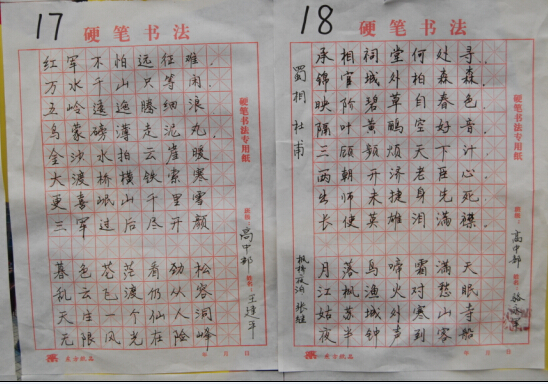 17
硬笔书法
红军不怕远征难.
万水千山只等闲.
五岭逶迤腾细浪
乌蒙磅薄走泥丸.
金沙水拍云崖暖
大渡桥横铁索寒
更喜岷山千里雪
三军过后尽开颜
暮色苍茫看劲松
乱云飞渡仍从容
天生一个仙人洞
无限风光在险峰
硬笔书法专用纸
班级:
高中部
姓名:
王建平
年 月 日
18
硬笔书法
蜀相 杜甫
承相祠堂何处寻.
锦官城外柏森森.
映阶碧草自春色
隔叶黄鹂空好音.
三顾频烦天下计.
两朝开济老臣心
出师未捷身先死.
长使英雄泪满襟.
枫桥夜泊 张继
月落乌啼霜满天
江枫渔火对愁眠
姑苏城外寒山寺
夜半钟声到客船
硬笔书法专用纸
班级:
高中部
姓名:
年 月 日